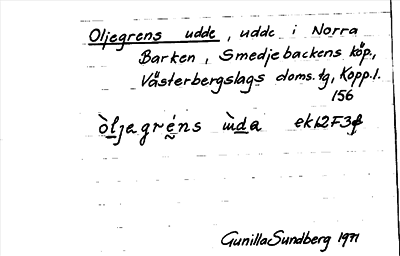 Oljegrens udde, udde i Norra
Barken, Smedjebackens köp.,
Västerbergslags doms. tg, Kopp. l.
156
òljagréns ùda
Gunilla Sundberg 1971